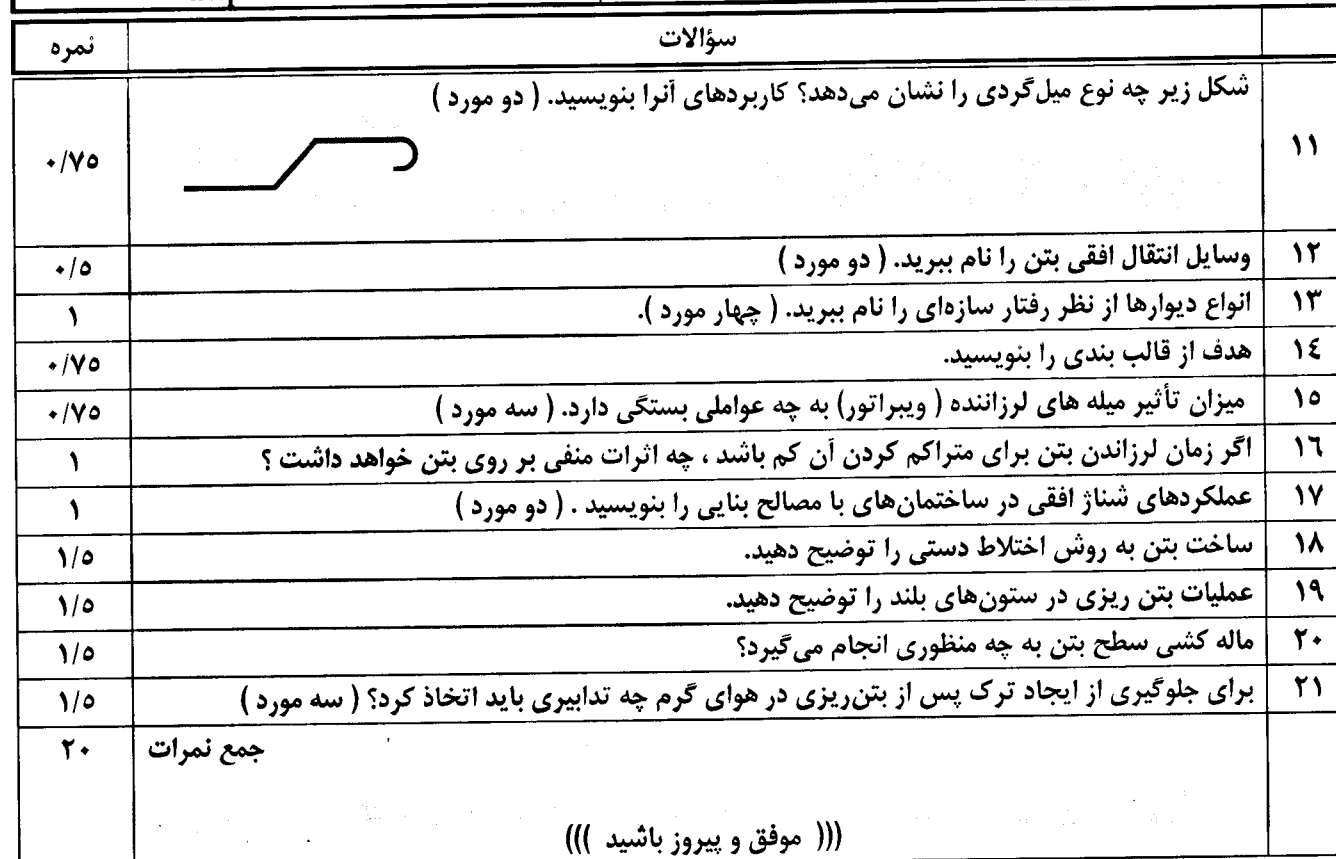 سؤالات
نمره
۱۱ شکل زیر چه نوع میل‌گردی را نشان می‌دهد؟ کاربردهای آنرا بنویسید. ( دو مورد ) ۰/۷۵
۱۲ وسایل انتقال افقی بتن را نام ببرید. ( دو مورد ) ۰/۵
۱۳ انواع دیوارها از نظر رفتار سازه‌ای را نام ببرید. ( چهار مورد ). ۱
۱٤ هدف از قالب بندی را بنویسید. ۰/۷۵
۱۵ میزان تأثیر میله های لرزاننده ( ویبراتور) به چه عواملی بستگی دارد. ( سه مورد ) ۰/۷۵
۱٦ اگر زمان لرزاندن بتن برای متراکم کردن آن کم باشد ، چه اثرات منفی بر روی بتن خواهد داشت ؟ ۱
۱۷ عملکردهای شناژ افقی در ساختمان‌های با مصالح بنایی را بنویسید . ( دو مورد ) ۱
۱۸ ساخت بتن به روش اختلاط دستی را توضیح دهید. ۱/۵
۱۹ عملیات بتن ریزی در ستون‌های بلند را توضیح دهید. ۱/۵
۲۰ ماله کشی سطح بتن به چه منظوری انجام می‌گیرد؟ ۱/۵
۲۱ برای جلوگیری از ایجاد ترک پس از بتن‌ریزی در هوای گرم چه تدابیری باید اتخاذ کرد؟ ( سه مورد ) ۱/۵
جمع نمرات ۲۰
((( موفق و پیروز باشید )))